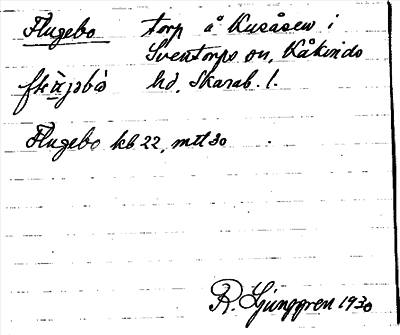 Flugebo torp å Kusåsen i
Sventorps sn, Kåkinds
hd, Skarab. l.
Flugebo kb 22, mtl 30
R. Ljunggren 1930